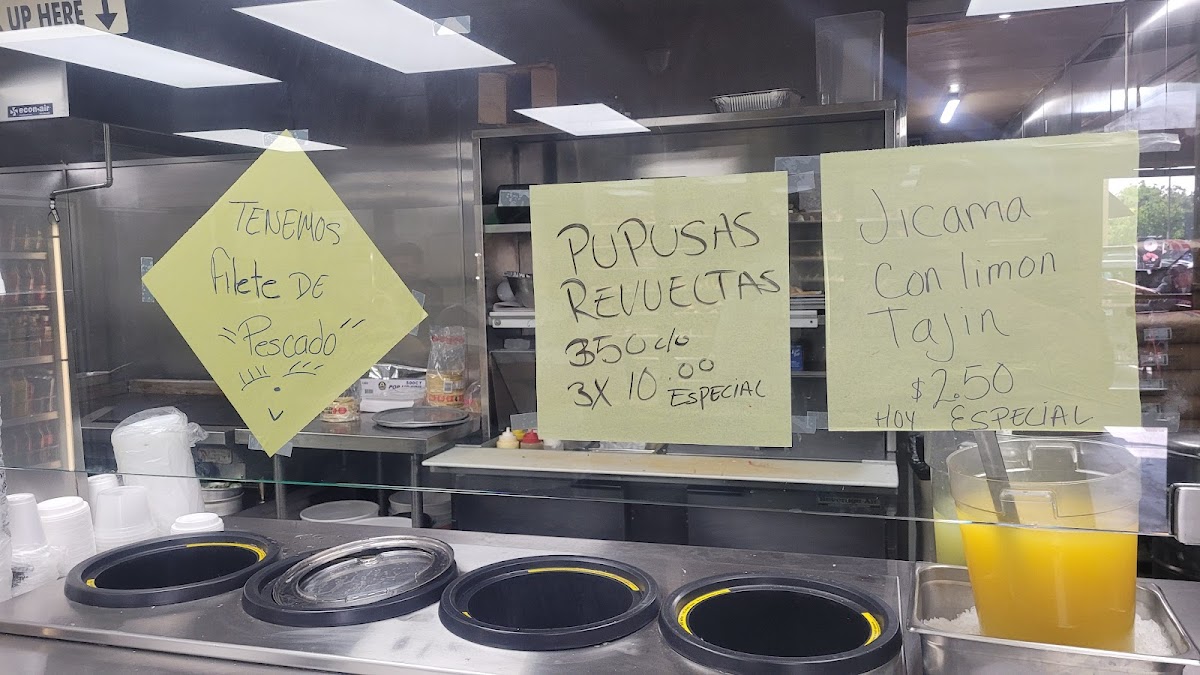 UP HERE
econ-air
TENEMOS
filete DE
"Pescado"
PUPUSAS
REVUELTAS
350 c/o
3X 10.00
ESPECIAL
Jicama
Con limon
Tajin
$2.50
HOY ESPECIAL